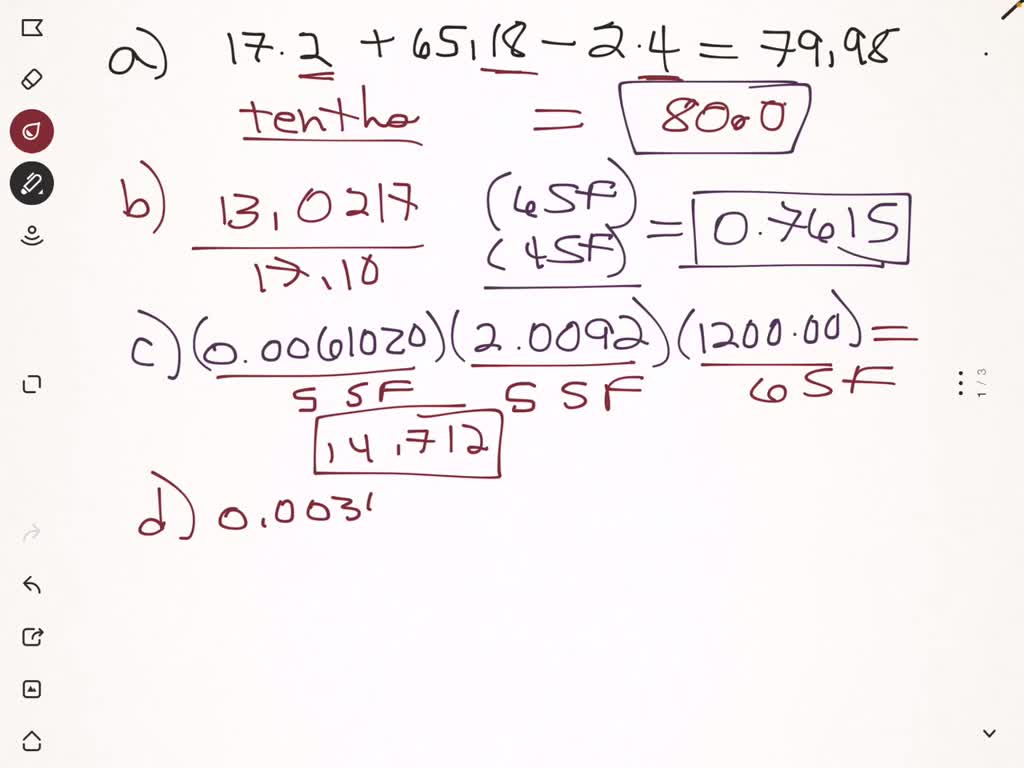 a) 17.2 + 65.18 - 2.4 = 79.98
tenths = 80.0
b) 13.0217 (6SF)
17.10 (4SF) = 0.7615
c) (0.0061020)(2.0092)(1200.00) =
5 SF 5 SF 6 SF
14.712
d) 0.0031
1 / 3